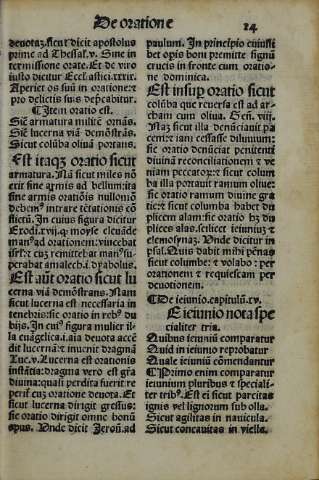 De oratione
24
deuotaʒ.sicut dicit apostolus
prime ad Thessal'.v. Sine in
termissione orate. Et de viro
iusto dicitur Eccl'astici.xxxix.
Aperiet os suū in oratione:et
pro delictis suis dep̄cabitur.
¶ Item oratio est.
Sic̄ armatura milite ornās.
Sic̄ lucerna viā demōstrās.
Sicut colūba oliuā portans.
Est itaqʒ oratio sicut
armatura. Nā sicut miles nō
exit sine armis ad bellum:ita
sine armis oratiōis nullomō
debemꝰ intrare tētationis cō
flictū. In cuius figura dicitur
Exodi.xvij.qꝫ moyse eleuāde
manꝰad orationem:vincebat
isr̄l':cuʒ remittebat manꝰsu-
perabat amalech.i.dyabolus.
Est aūt oratio sicut lu
cerna viā demonstrans. Nam
sicut lucerna est necessaria in
tenebris:sic oratio in rebꝰ du
bijs. In cuiꝰ figura mulier il-
la euāgelica.i.aīa deuota accē
dit lucernā:⁊ inuenit dragmā
Luc.xv. Lucerna est orationis
instātia:dragma vero est gr̄a
diuina:quasi perdita fuerit re
perit eūʒ oratione deuota. Et
sicut lucerna dirigit gressus:
sic oratio dirigit omne bonū
opus. Vnde dicit Jeroñ.ad
paulum. In principio cuiusli
bet opis boni premitte signū
crucis in fronte cum oratio-
ne dominica.
Est insup̄ oratio sicut
colūba que reuersa est ad ar-
cham cum oliua. Geñ.viij.
Naʒ sicut illa denūciauit pa
cem:⁊ iam cessasse diluuium:
sic oratio denūciat penitenti
diuinā reconciliationem ⁊ ve
niam peccatoꝝ:⁊ sicut colum
ba illa portauit ramum oliue:
sic oratio ramum diuine gra
tie:⁊ sicut columba habet du
plicem alam:sic oratio hʒ du
plices alas.scilicet ieiuniuʒ ⁊
elemosynaʒ. Vnde dicitur in
psal. Quis dabit mihi pēnas
sicut columbe: ⁊ volabo: per
orationem ⁊ requiescam per
deuotionem.
¶ De ieiunio.capitulū.cv.
E ieiunio nota spe
cialiter tria.
Quibus ieiuniū comparatur
Quid in ieiunio reprobatur
Quale ieiuniū cōmendantur
¶ Primo enim comparatur
ieiunium pluribus ⁊ speciali-
ter tribꝰ. Est ei sicut parcitas
ignis vel lignorum sub olla.
Sicut agilitas in nauicula.
Sicut concauitas in viella.